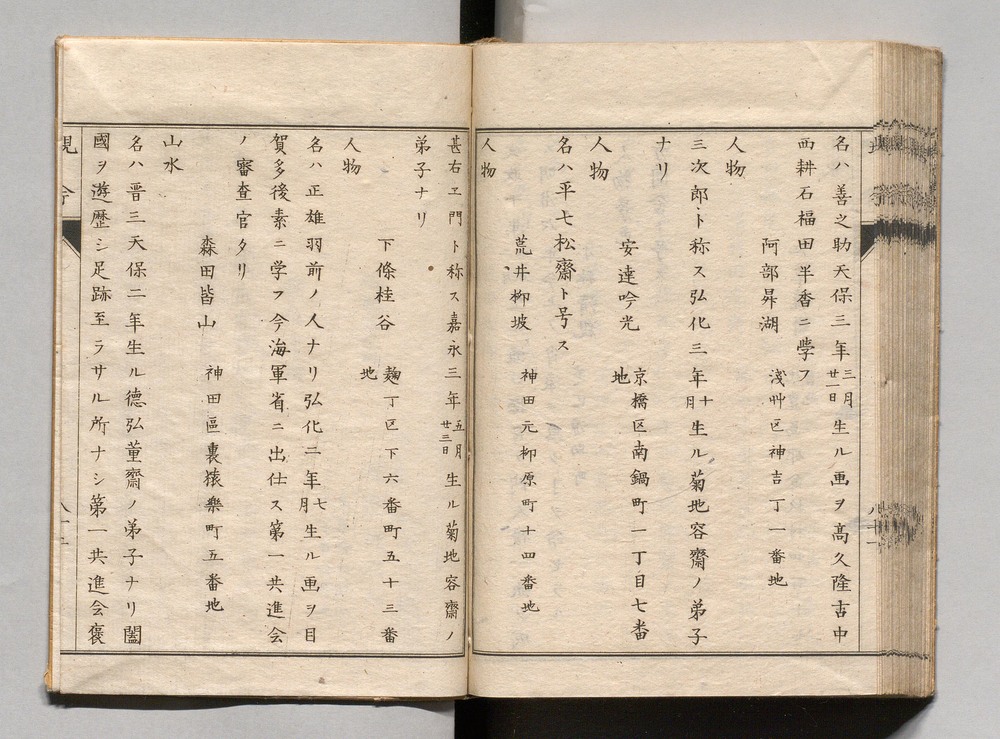 名ハ善之助天保三年三月廿一日生ル画ヲ高久隆古中
西耕石福田半香ニ学フ
阿部昇湖 浅艸区神吉丁一番地
人物
三次郎ト称ス弘化三年十月生ル菊地容齋ノ弟子
ナリ
安達吟光 京橋区南鍋町一丁目七番地
人物
名ハ平七松齋ト号ス
荒井柳坡 神田元柳原町十四番地
人物
甚右エ門ト称ス嘉永三年五月廿三日生ル菊地容齋ノ
弟子ナリ
下條桂谷 麹丁区下六番町五十三番地
人物
名ハ正雄羽前ノ人ナリ弘化二年七月生ル画ヲ目
賀多後素ニ学フ今海軍省ニ出仕ス第一共進会
ノ審査官タリ
森田皆山 神田區裏猿樂町五番地
山水
名ハ晋三天保二年生ル德弘董齋ノ弟子ナリ闔
國ヲ遊歴シ足跡至ラサル所ナシ第一共進会褒